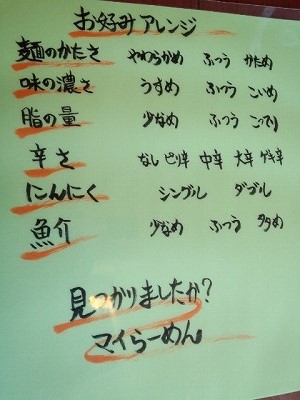 お好みアレンジ
麺のかたさ やわらかめ ふつう かため
味の濃さ うすめ ふつう こいめ
脂の量 少なめ ふつう こってり
辛さ なし ピリ辛 中辛 大辛 ゲキ辛
にんにく シングル ダブル
魚介 少なめ ふつう 多め
見つかりましたか?
マイらーめん